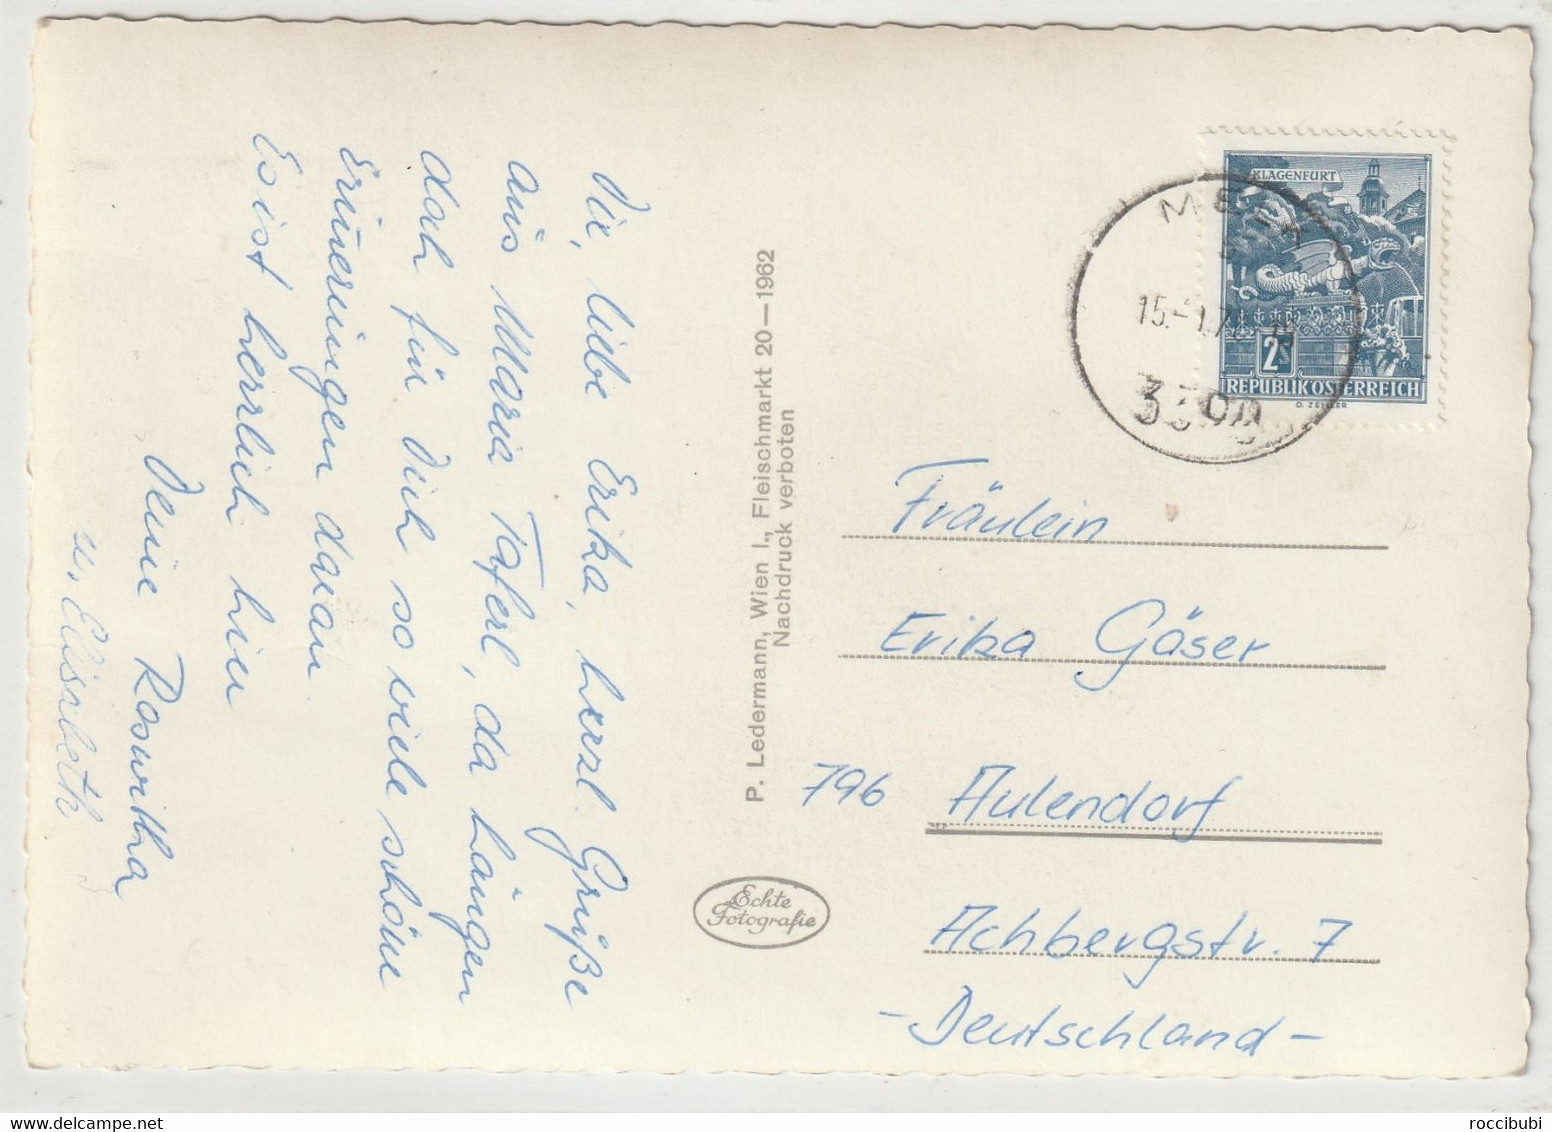 Dir, liebe Erika, herzl. Grüße
aus Maria Taferl, da hängen
doch für Dich so viele schöne
Erinnerungen daran.
Es ist herrlich hier
Deine Roswitha
u. Elisabeth
P. Ledermann, Wien I., Fleischmarkt 20—1962
Nachdruck verboten
Echte
Fotografie
KLAGENFURT
2
REPUBLIK ÖSTERREICH
MELK
3390
Fräulein
Erika Gäser
796 Aulendorf
Achbergstr. 7
- Deutschland -
roccibubi